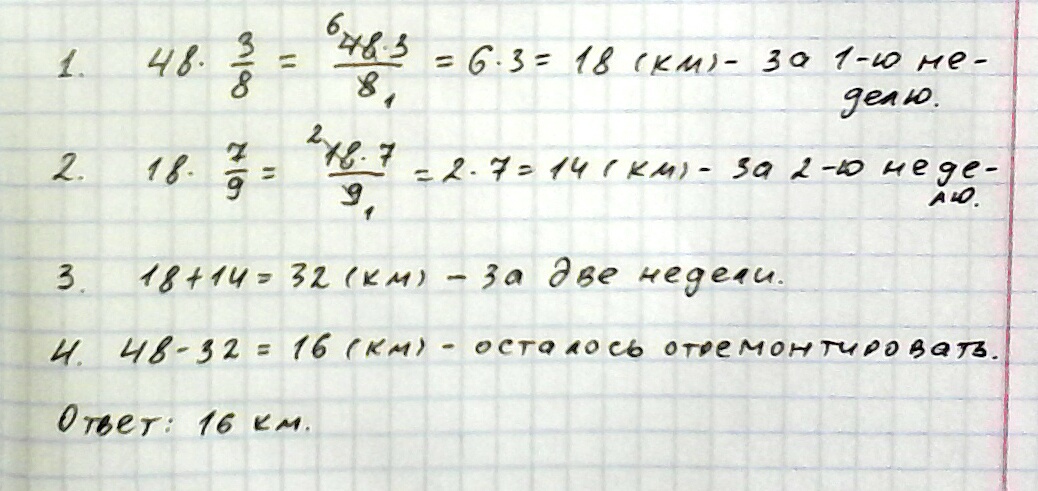 1. 48 · 3/8 = 6 48·3/8 1 = 6·3 = 18 (км) - за 1-ю не-
делю.
2. 18 · 7/9 = 2 18·7/9 1 = 2·7 = 14 (км) - за 2-ю неде-
лю.
3. 18+14 = 32 (км) - за две недели.
4. 48-32 = 16 (км) - осталось отремонтировать.
Ответ: 16 км.